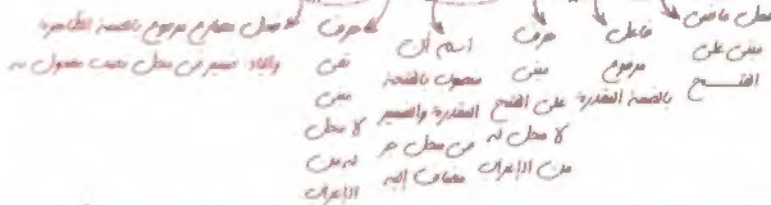 فعل ماضى
مبنى على
الفتح
فاعل
مرفوع
بالضمة المقدرة
حرف
مبنى
على الفتح
لا محل له
من الإعراب
اسم أن
منصوب بالفتحة
المقدرة والضمير
فى محل جر
مضاف إليه
حرف
نفى
مبنى
لا محل
له من
الإعراب
فعل مضارع مرفوع بالضمة الظاهرة
والهاء ضمير فى محل نصب مفعول به